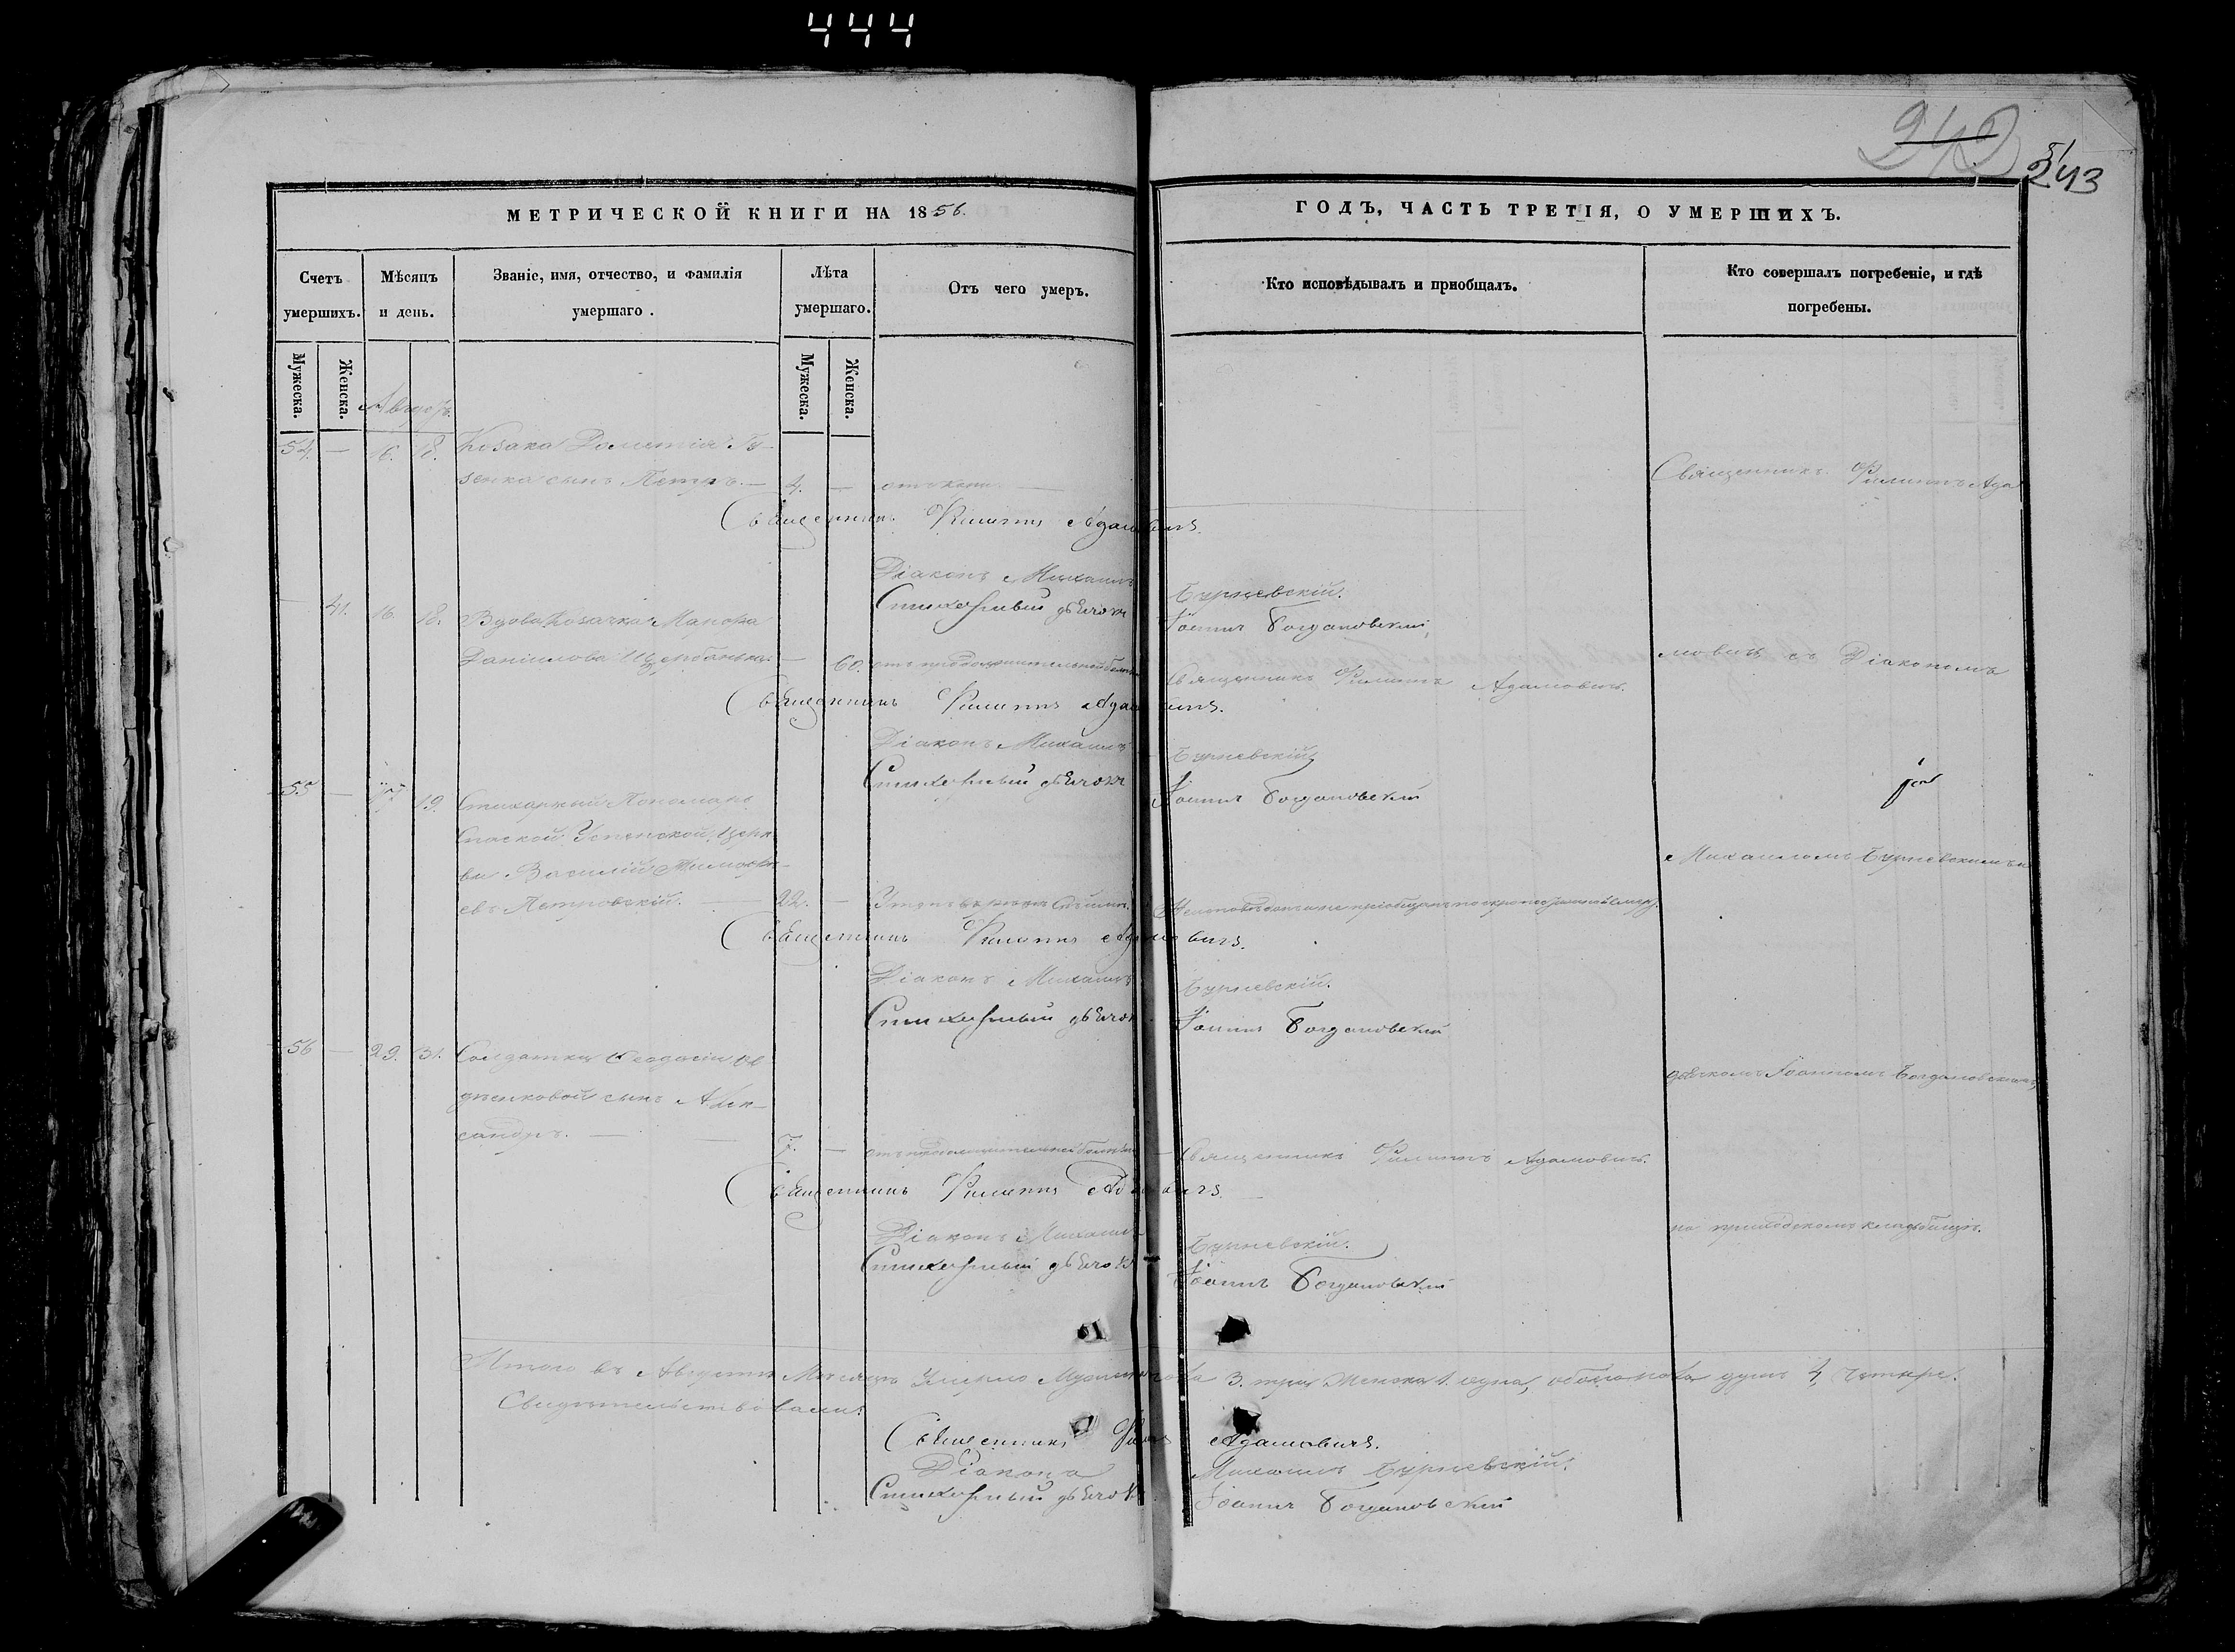 444
242
243
МЕТРИЧЕСКОЙ КНИГИ НА 1856.
ГОДЪ, ЧАСТЬ ТРЕТІЯ, О УМЕРШИХЪ.
Счетъ умершихъ.
Мѣсяцъ и день.
Званіе, имя, отчество, и фамилія умершаго.
Лѣта умершаго.
Отъ чего умеръ.
Кто исповѣдывалъ и приобщалъ.
Кто совершалъ погребеніе, и гдѣ погребены.
Мужеска.
Женска.
Мужеска.
Женска.
54. — 16. 18. Козака
сынъ Петръ. — 4. —
Священникъ Филиппъ Ада
Священникъ Филиппъ Адамовичъ.
Діаконъ Михаилъ Бурчевскій.
Стихарный дьячокъ Іоаннъ Богдановскій,
41. 16. 18. Вдова Козачка
Даніилова — 60. отъ продолжительной
Священникъ Филиппъ Адамовичъ.
мовичъ съ Діакономъ
Священникъ Филиппъ Адамовичъ.
Діаконъ Михаилъ Бурчевскій
Стихарный дьячокъ Іоаннъ Богдановскій
55 — 17 19. Стихарный Пономарь
Спаской Успенской церк
ви Василій Тимофе
евъ Петровскій. — 22. —
Михаиломъ Бурчевскимъ и
Священникъ Филиппъ Адамовичъ.
Діаконъ Михаилъ Бурчевскій.
Стихарный дьячокъ Іоаннъ Богдановскій
56 — 29. 31. Солдатки Феодосіи
сынъ Алек-
сандръ. — 7. — отъ продолжительной
Священникъ Филиппъ Адамовичъ.
дьячкомъ Іоанномъ Богдановскимъ,
Священникъ Филиппъ Адамовичъ.
Діаконъ Михаилъ Бурчевскій.
Стихарный дьячокъ Іоаннъ Богдановскій
на приходскомъ кладбищѣ.
Итого въ Августѣ Мѣсяцѣ Умерло Мужеска пола 3. три Женска 1. одна, обоего пола душъ 4, Четыре.
Свидѣтельствовали:
Священникъ Филиппъ Адамовичъ.
Діаконъ Михаилъ Бурчевскій.
Стихарный дьячокъ Іоаннъ Богдановскій